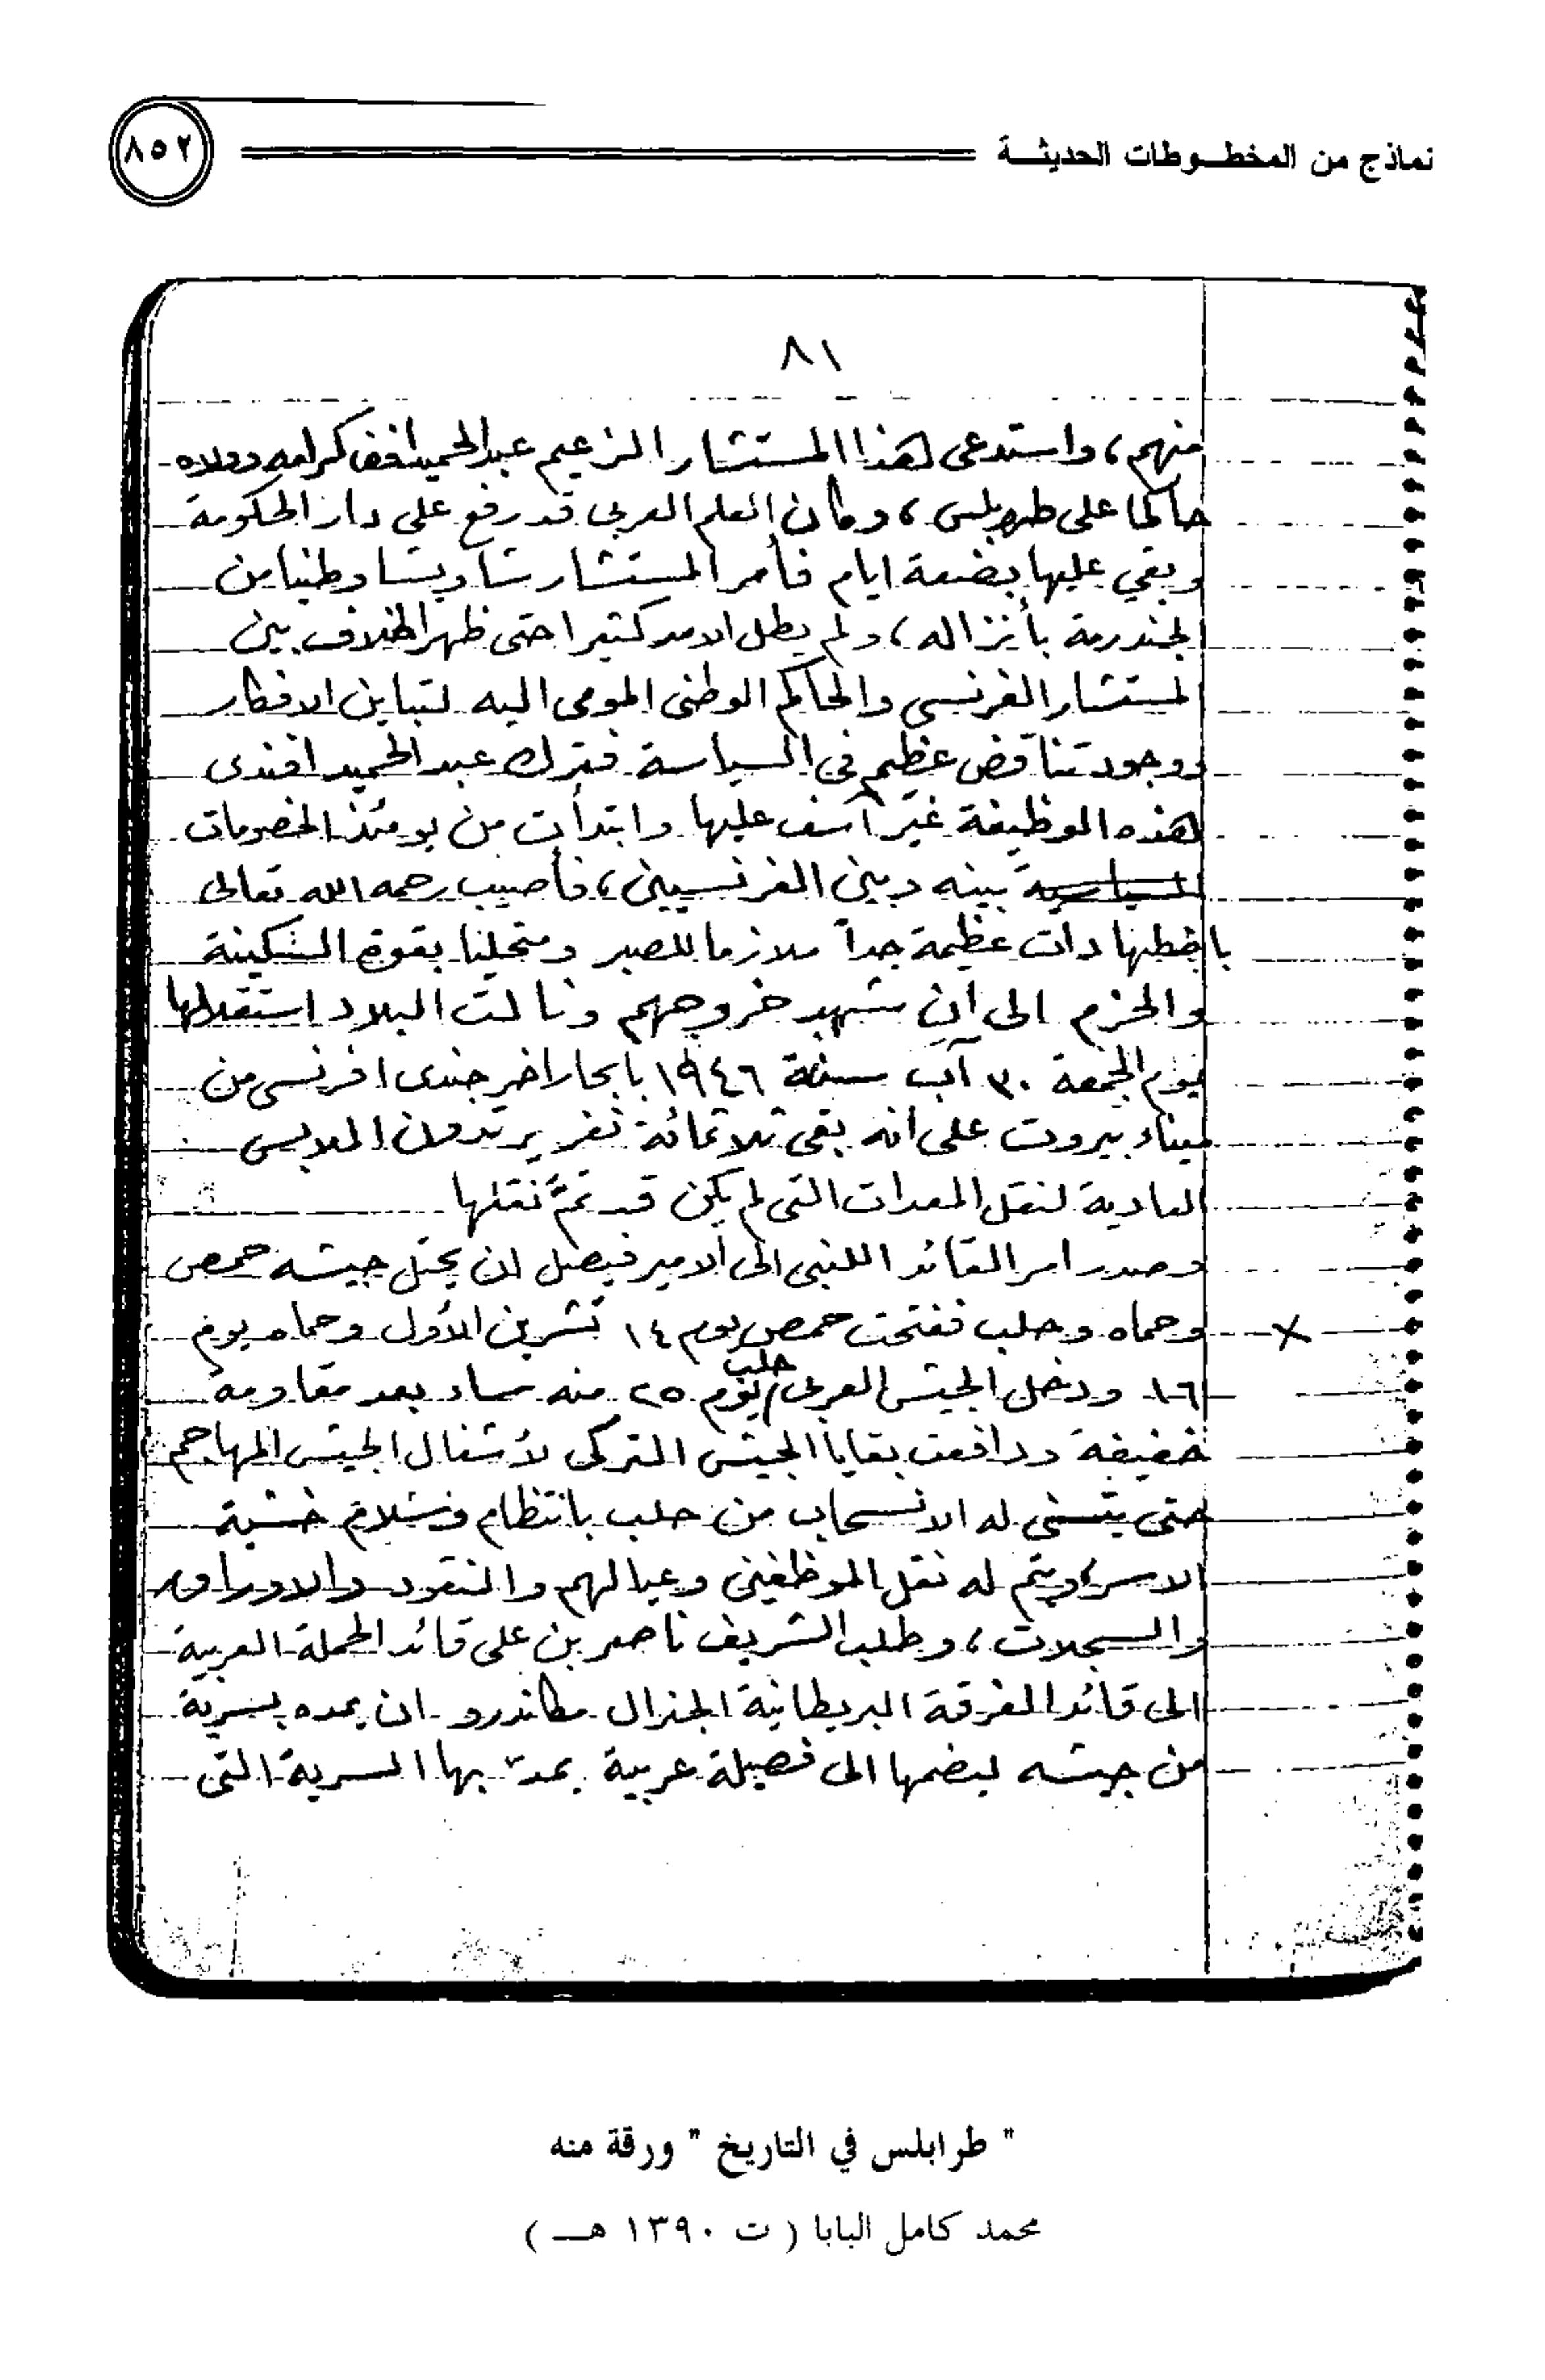 نماذج من المخطوطات الحديثة
٨٥٢
٨١
منهم، واستدعى هذا المستشار الزعيم عبد الحميد افندي كرامه وولاه
حاكما على طرابلس، وكان العلم العربي قد رفع على دار الحكومة
وبقي عليها بضعة ايام فأمر المستشار شاويشا وطنيا من
الجندرمة بأنزاله، ولم يطل الامد كثيرا حتى ظهر الخلاف بين
المستشار الفرنسي والحاكم الوطني المومى اليه لتباين الافكار
ووجود تناقض عظيم في السياسة فترك عبد الحميد افندى
هذه الوظيفة غير آسف عليها وابتدأت من يومئذ الخصومات
السياسية بينه وبين الفرنسيين، فأصيب رحمه الله تعالى
باضطهادات عظيمة جداً ملازما للصبر ومتحليا بقوة السكينة
والحزم الى أن شهد خروجهم ونالت البلاد استقلالها
يوم الجمعة ٣٠ آب سنة ١٩٤٦ بابحار اخر جندى افرنسي من
ميناء بيروت على انه بقى ثلاثمائة نفر يرتدون الملابس
العادية لنقل المعدات التى لم يكن قد تمَّ نقلها
وصدر امر القائد اللنبى الى الامير فيصل ان يحتل جيشه حمص
وحماه وحلب ففتحت حمص يوم ١٤ تشرين الأول وحماه يوم
١٦ ودخل الجيش العربى حلب يوم ٢٥ منه مساء بعد مقاومة
خفيفة ودافعت بقايا الجيش التركى لأشغال الجيش المهاجم
حتى يتسنى له الانسحاب من حلب بانتظام وسلام خشية
الاسر، ويتم له نقل الموظفين وعيالهم والنقود والاوراق
والسجلات، وطلب الشريف ناصر بن على قائد الحملة العربية
الى قائد الفرقة البريطانية الجنرال مكاندرو ان يمده بسرية
من جيشه ليضمها الى فصيلة عربية يمدّ بها السرية التى
" طرابلس في التاريخ " ورقة منه
محمد كامل البابا ( ت ١٣٩٠ هـ )